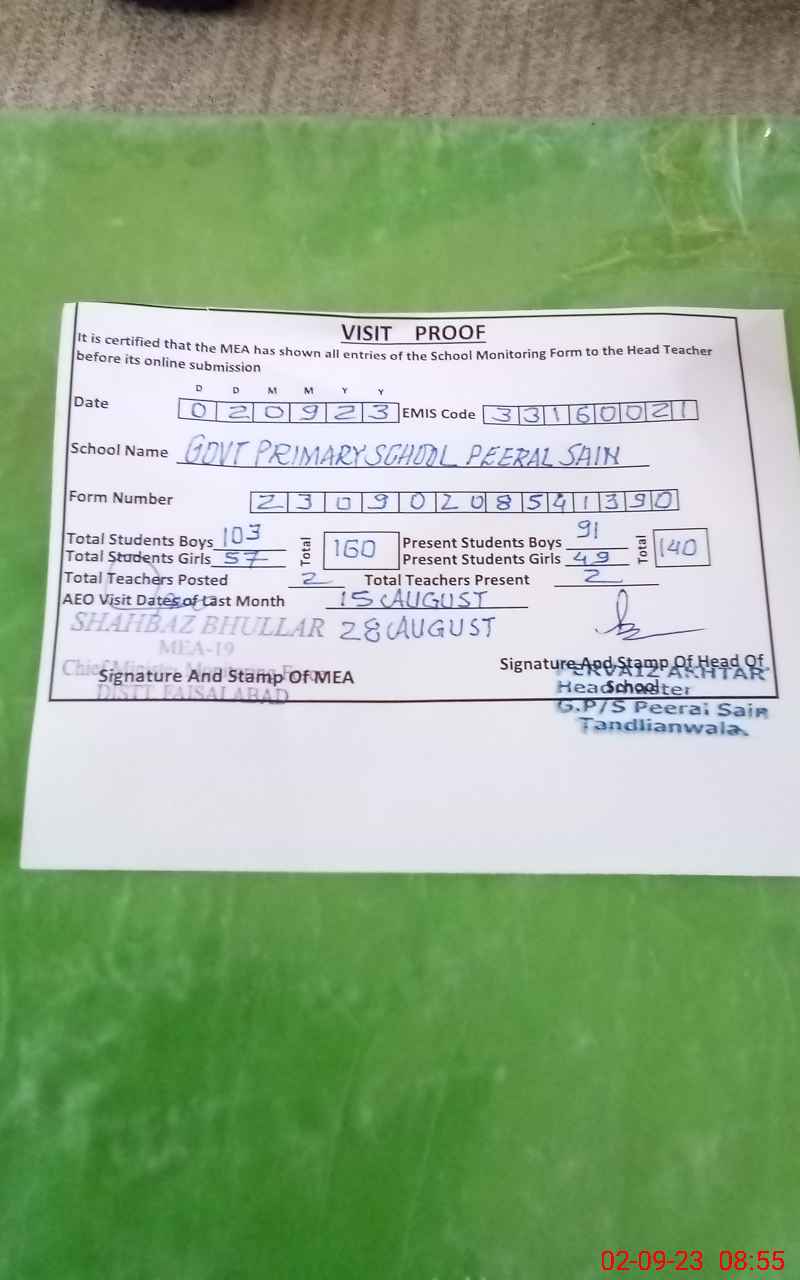 VISIT PROOF
It is certified that the MEA has shown all entries of the School Monitoring Form to the Head Teacher
before its online submission
D D M M Y Y
Date 0 2 0 9 2 3 EMIS Code 3 3 1 6 0 0 2 1
School Name GOVT PRIMARY SCHOOL PEERAL SAIN
Form Number 2 3 0 9 0 2 0 8 5 4 1 3 9 0
Total Students Boys 103 Total 160 Present Students Boys 91 Total 140
Total Students Girls 57 Present Students Girls 49
Total Teachers Posted 2 Total Teachers Present 2
AEO Visit Dates of Last Month 15 AUGUST
SHAHBAZ BHULLAR 28 AUGUST
MEA-19
Chief Minister Monitoring Force
Signature And Stamp Of MEA
DISTT. FAISALABAD
Signature And Stamp Of Head Of
School
PERVAIZ AKHTAR
Headmaster
G.P/S Peeral Sain
Tandlianwala.
02-09-23 08:55